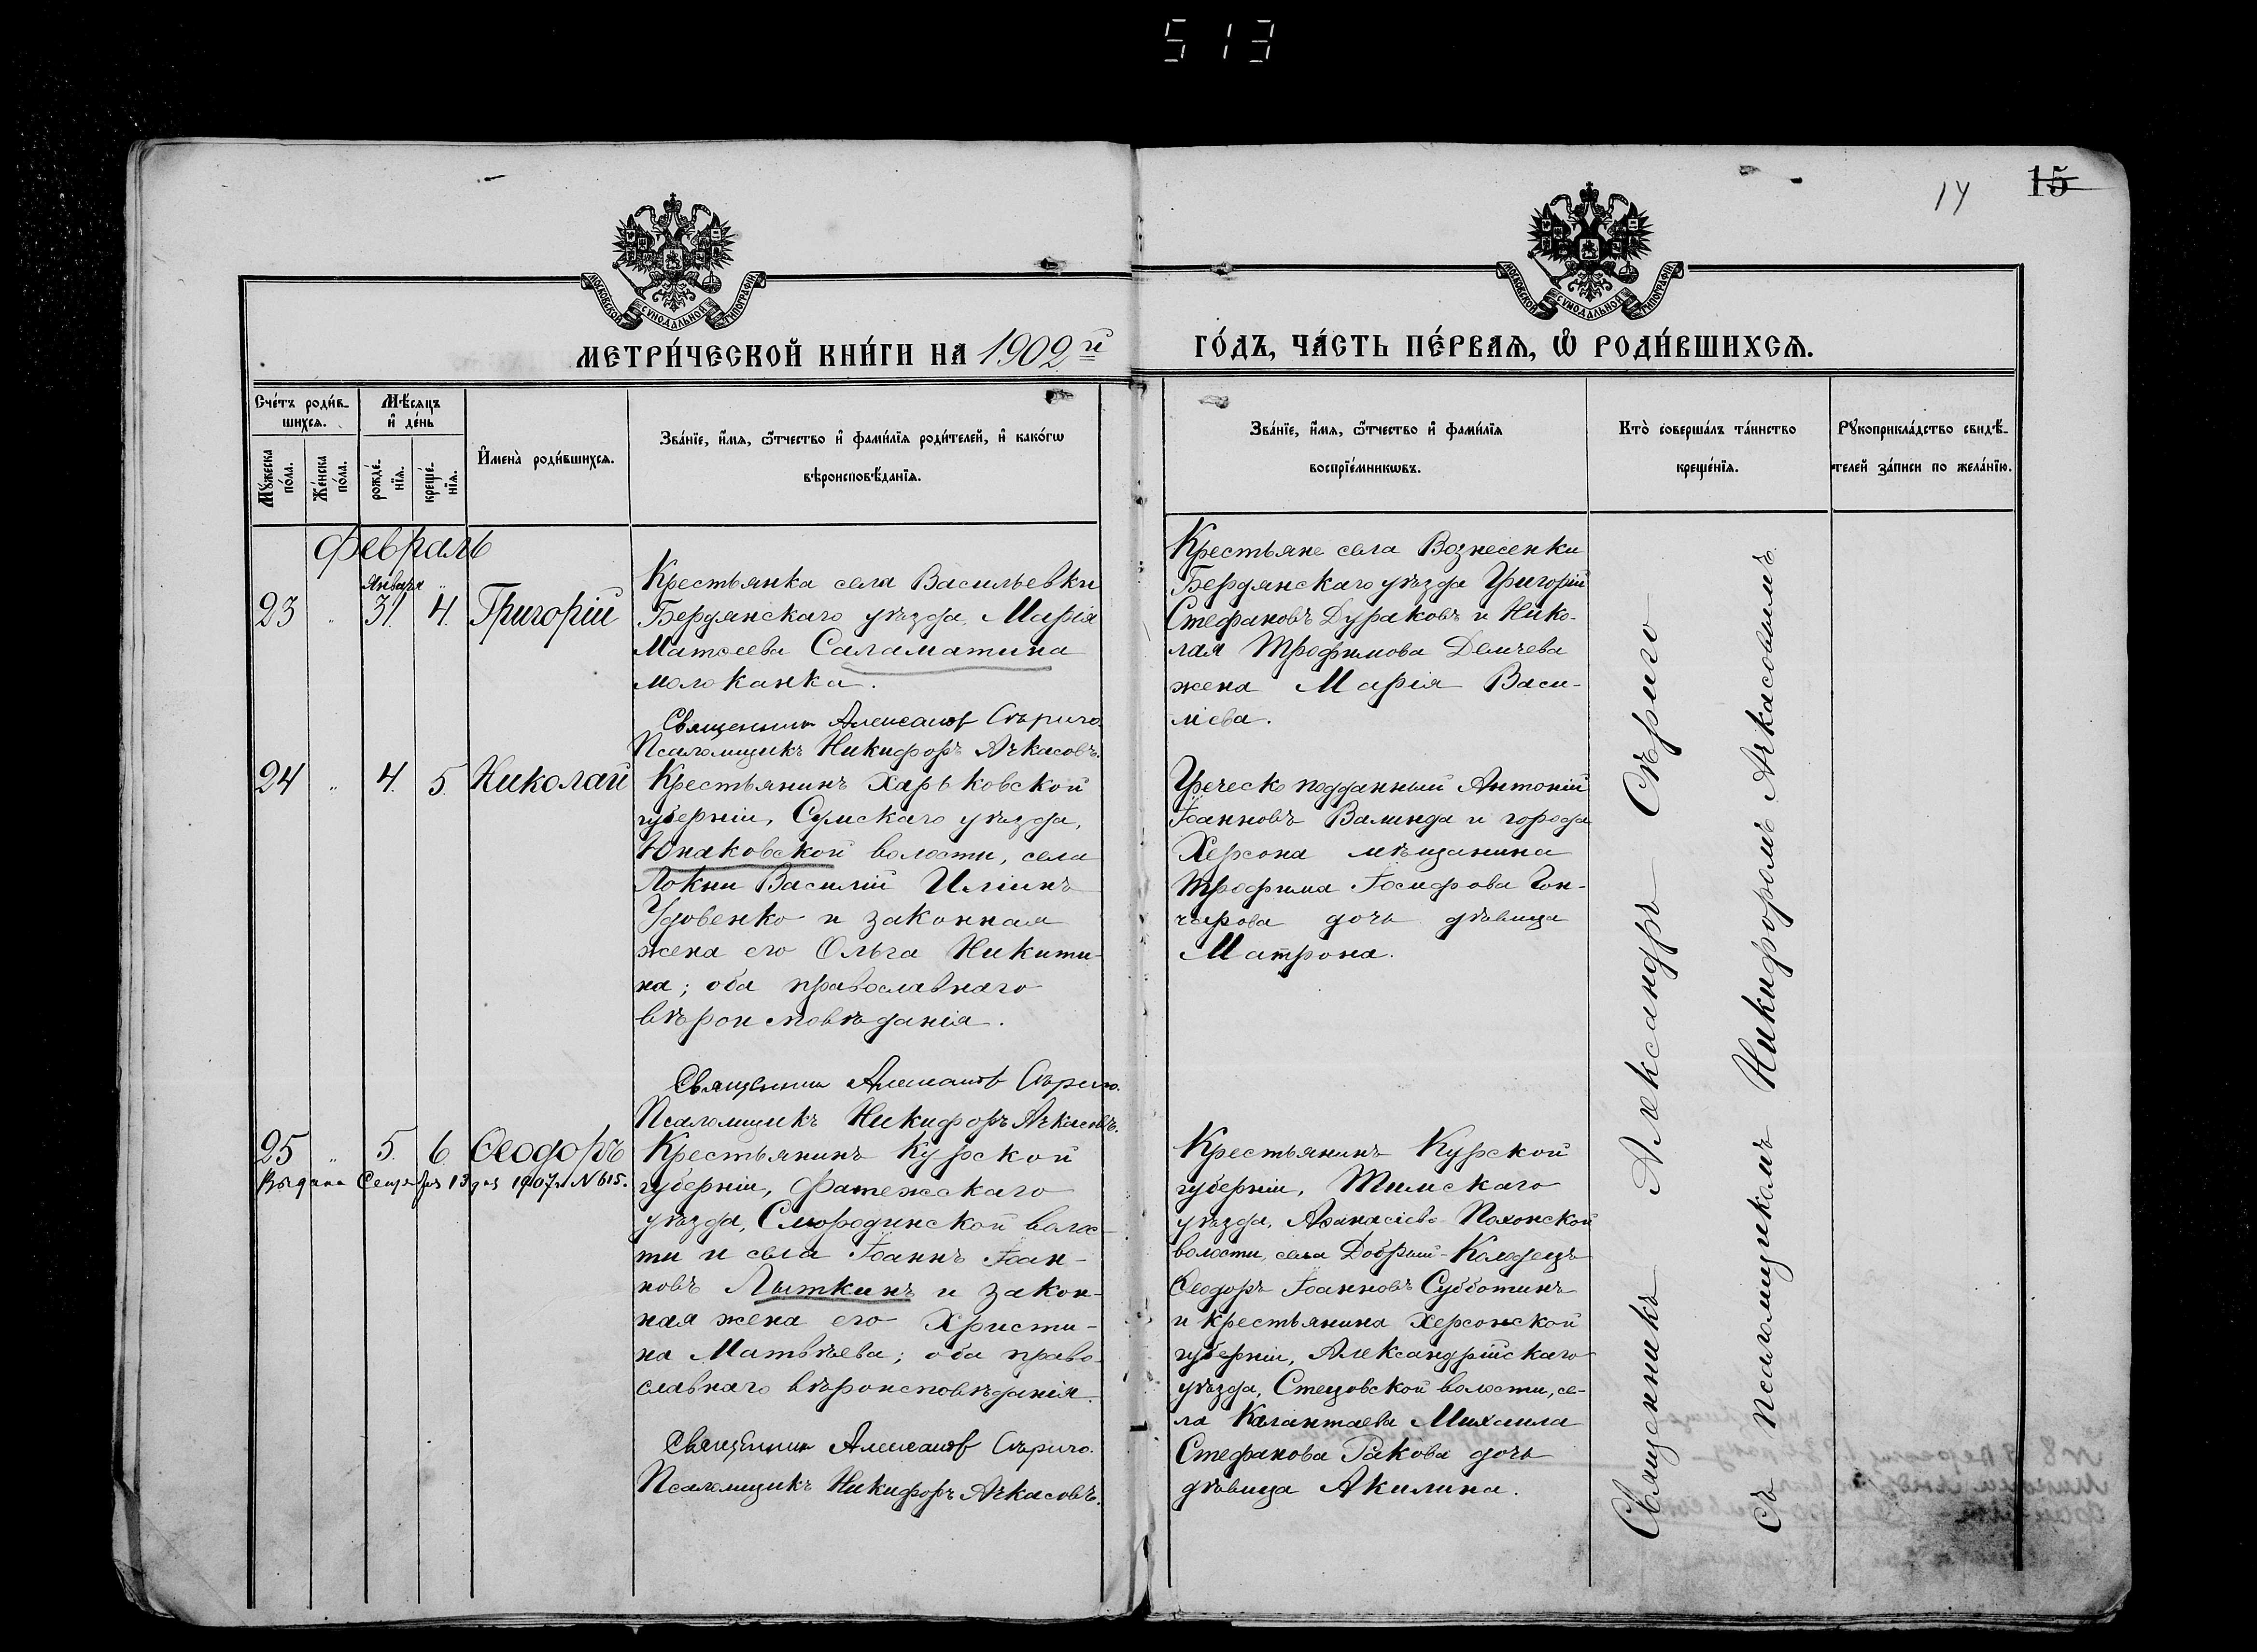 513
14
15
МОСКОВСКОЙ СѴНОДАЛЬНОЙ ТИПОГРАФІИ
МОСКОВСКОЙ СѴНОДАЛЬНОЙ ТИПОГРАФІИ
МЕТРИ́ЧЕСКОЙ КНИ́ГИ НА 1902й
ГО́ДЪ, ЧА́СТЬ ПЕ́РВАѦ, Ѽ РОДИ́ВШИХСѦ.
Сче́тъ роди́в-
шихсѧ.
Мꙋ́жеска по́ла.
Же́нска по́ла.
Мѣ́сѧцъ
и҆ де́нь
рожде́-
нїѧ.
креще́-
нїѧ.
И҆мена̀ роди́вшихсѧ.
Зва́нїе, и҆́мѧ, ѻ҆́тчество и҆ фамі́лїѧ роди́телей, и҆ како́гѡ
вѣроисповѣ́данїѧ.
Зва́нїе, и҆́мѧ, ѻ҆́тчество и҆ фамі́лїѧ
воспрїе́мникѡвъ.
Кто̀ соверша́лъ та́инство
креще́нїѧ.
Рꙋкоприкла́дство свидѣ́-
телей за́писи по жела́нїю.
Февраль
Января "
23 " 31. 4. Григорій
Крестьянка села Васильевки
Бердянскаго уѣзда, Марія
Матѳеева Саламатина
молоканка.
Священникъ Александръ Сѣриго.
Псаломщикъ Никифоръ Ачкасовъ.
Крестьяне села Вознесенки
Бердянскаго уѣзда Григорій
Стефановъ Дураковъ и Нико-
лая Трофимова Демчева
жена Марія Васи-
лiева.
24 " 4. 5. Николай
Крестьянинъ Харьковской
губерніи, Сумскаго уѣзда,
Юнаковской волости, села
Локни Василій Иліинъ
Удовенко и законная
жена его Ольга Никити-
на; оба православнаго
вѣроисповѣданія.
Священникъ Александръ Сѣриго.
Псаломщикъ Никифоръ Ачкасовъ.
Греческо подданный Антоній
Іоанновъ Валинда и города
Херсона мѣщанина
Трофима Іосифова Гон-
чарова дочь дѣвица
Матрона.
25 " 5. 6. Ѳеодоръ
Выдана Сентября 13 дня 1907 г. N 615.
Крестьянинъ Курской
губерніи, Фатежскаго
уѣзда, Смородинской волос-
ти и села Іоаннъ Іоан-
новъ Лыткинъ и закон-
ная жена его Христи-
на Матвѣева; оба право-
славнаго вѣроисповѣданія.
Священникъ Александръ Сѣриго.
Псаломщикъ Никифоръ Ачкасовъ.
Крестьянинъ Курской
губерніи, Тимскаго
уѣзда, Аѳанасіево-Пахонской
волости, села Добрый-Колодезь
Ѳеодоръ Іоанновъ Субботинъ
и крестьянина Херсонской
губерніи, Александрійскаго
уѣзда, Стецовской волости, се-
ла Калантаева Михаила
Стефанова Ракова дочь
дѣвица Акилина.
Священникъ Александръ Сѣриго
съ псаломщикомъ Никифоромъ Ачкасовымъ.